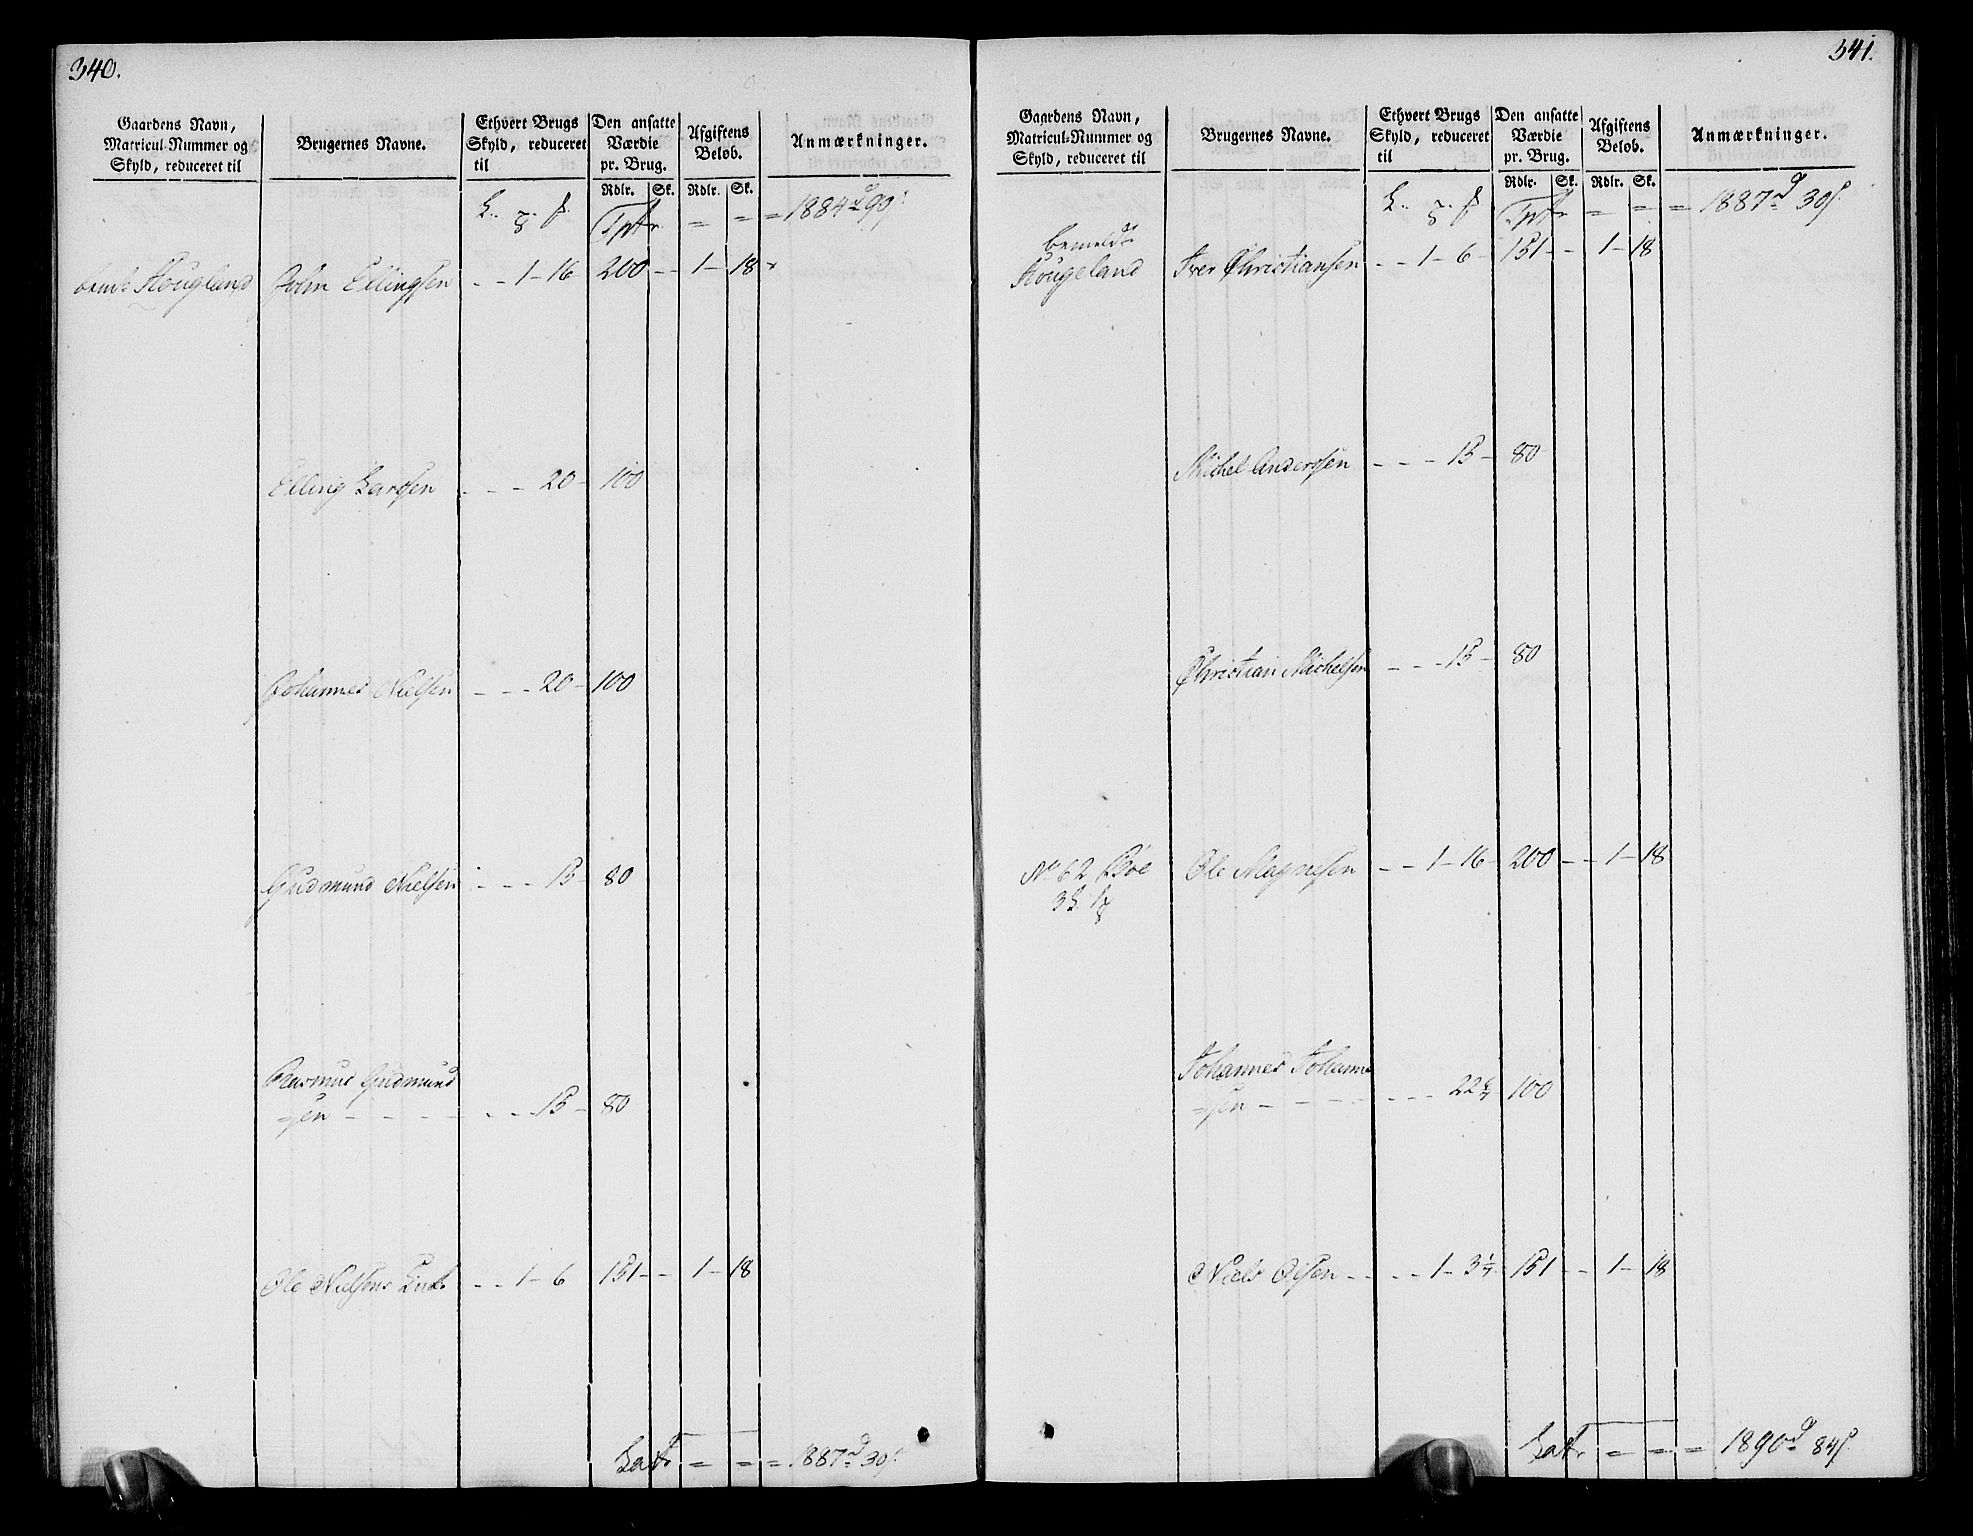 340.
Gaardens Navn, Matricul-Nummer og Skyld, reduceret til
Brugernes Navne.
Ethvert Brugs Skyld, reduceret til
Den ansatte Værdie pr. Brug.
Afgiftens Beløb.
Anmærkninger.
Rdlr. Sk. Rdlr. Sk.
Tptr = = = 1884 d 90 s.
Hougland John Ellingsen - - 1 - 16 200 - - 1 - 18
Elling Larssen - - - 20 - 100
Johannes Nielsen - - - 20 - 100
Gudmund Nielsen - - - 15 - 80
Rasmus Gudmund
=sen - - - - - - 15 - 80
Ole Nielsens - - 1 - 6 151 - - 1 - 18
Lat. = = = 1887 d 30 s.
341.
Gaardens Navn, Matricul-Nummer og Skyld, reduceret til
Brugernes Navne.
Ethvert Brugs Skyld, reduceret til
Den ansatte Værdie pr. Brug.
Afgiftens Beløb.
Anmærkninger.
Rdlr. Sk. Rdlr. Sk.
Tptr = = = 1887 d 30 s.
bemeldte
Hougeland Iver Christiansen - - 1 - 6 - 151 - - 1 - 18
Michel Anderssen - - - 15 - 80
Christian Michelsen - - - 15 - 80
No 62 Bøe Ole Magnesen - - 1 - 16 - 200 - - 1 - 18
Johannes Johanne
=sen - - - - - - - 22 100
Niels Olsen - - - - 1 - 3 151 - - 1 - 18
Lat. = = = 1890 d 84 s.